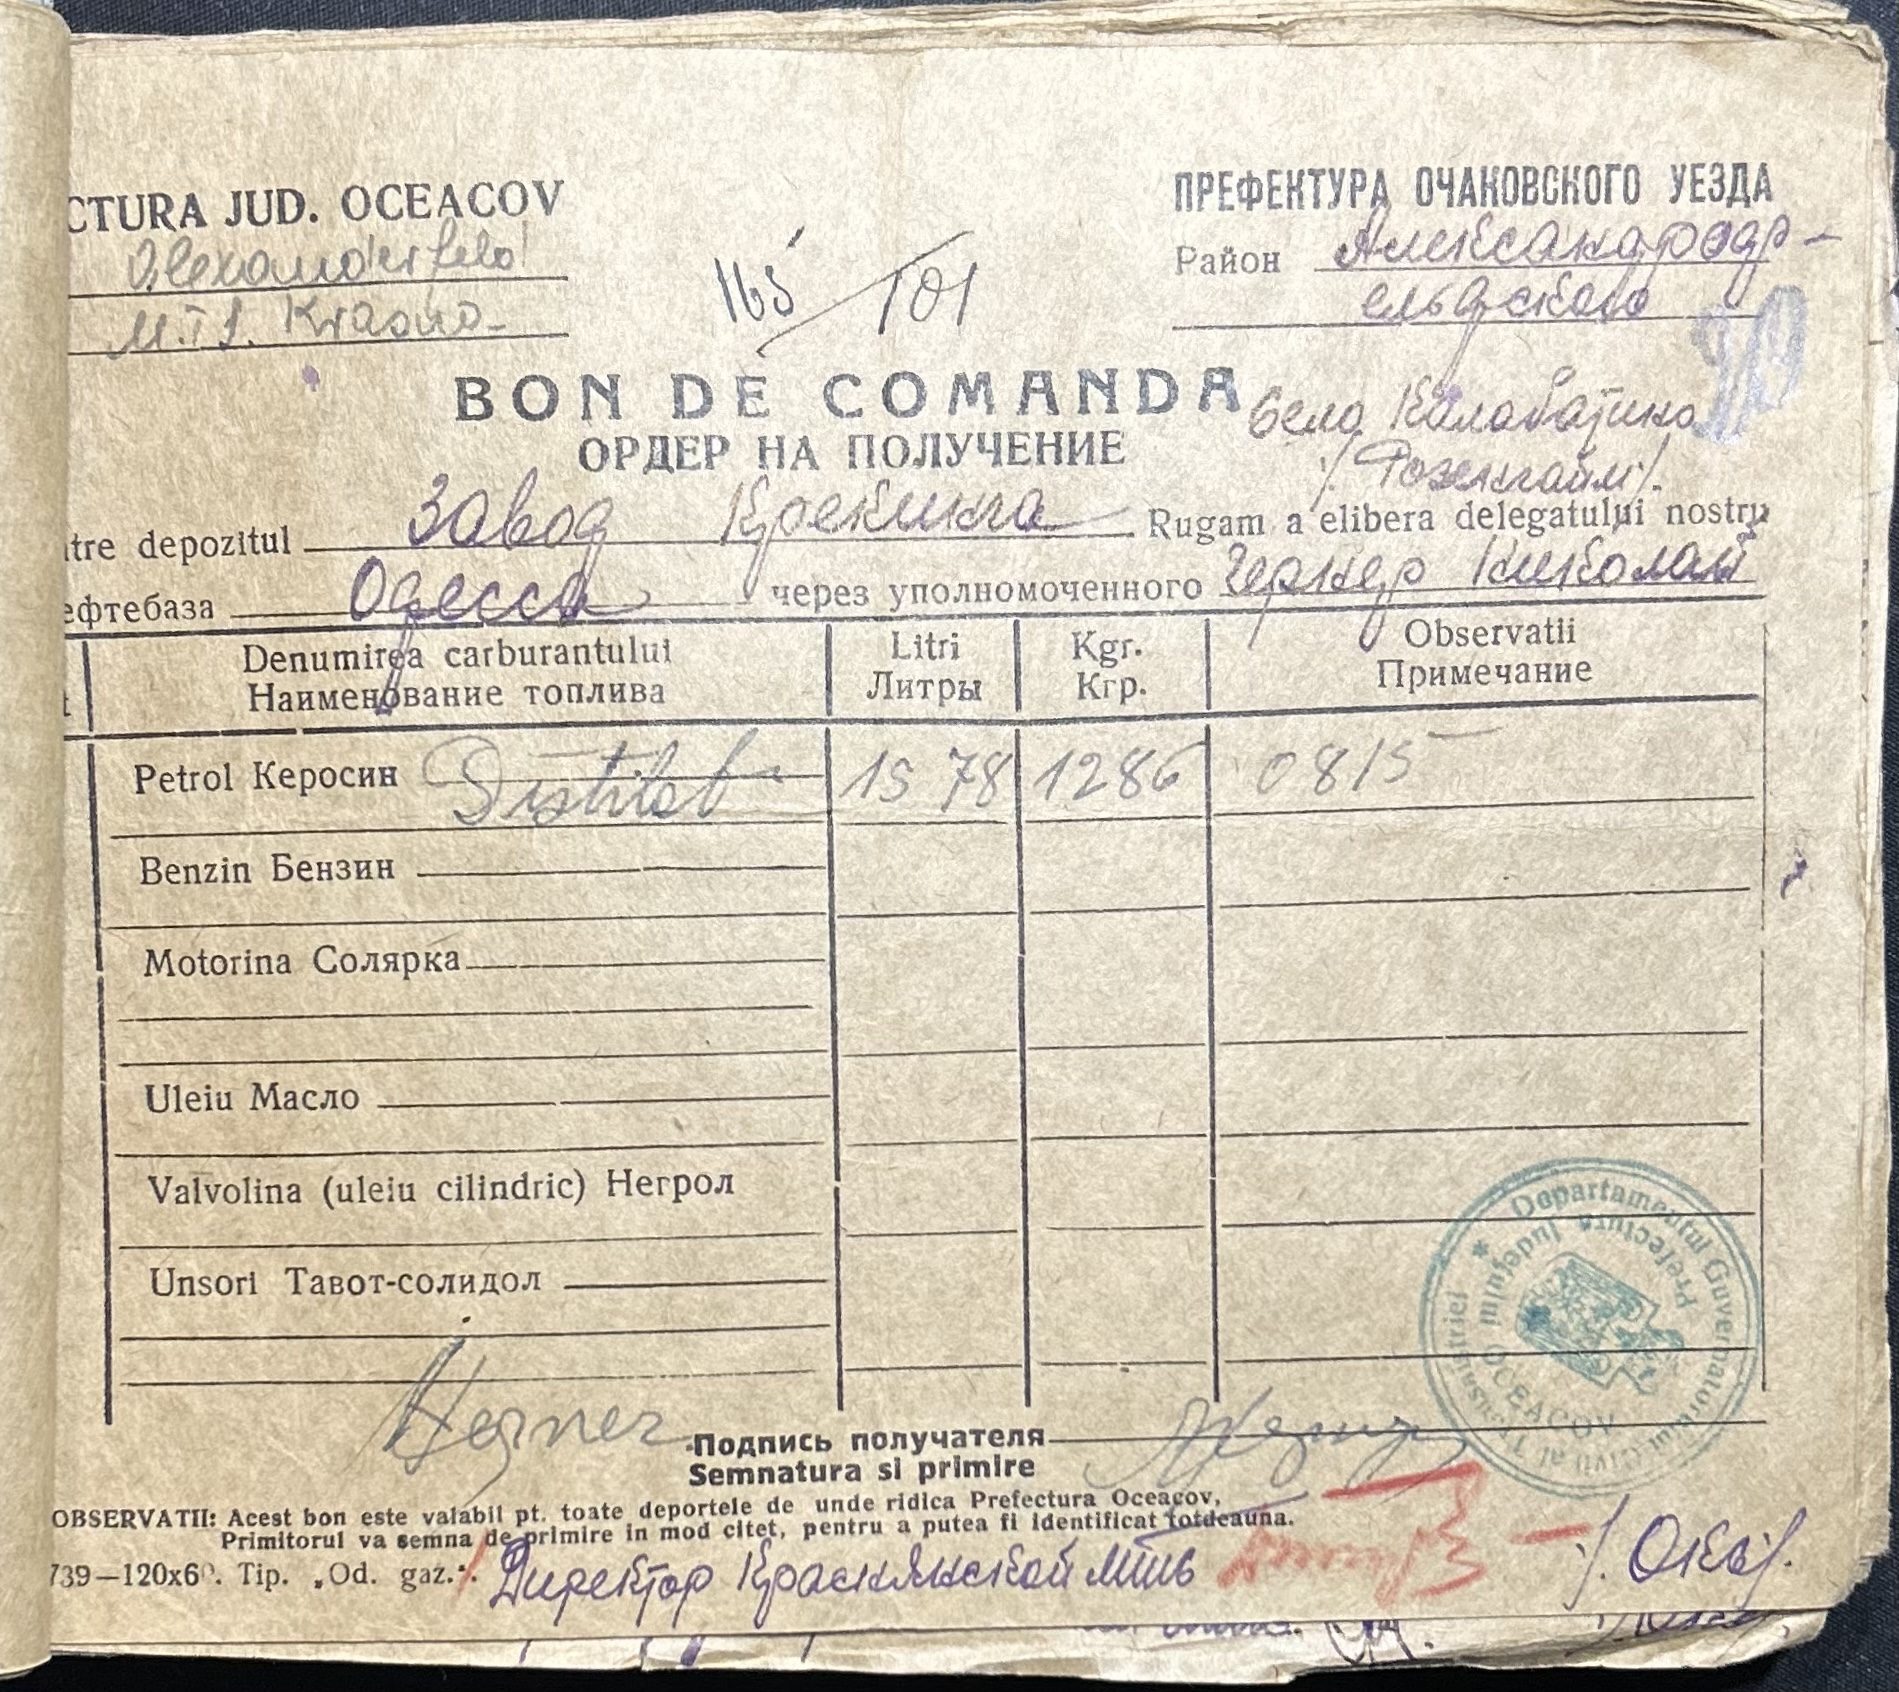 CTURA JUD. OCEACOV
Alexanderfeld
M.T.S. Krasno-
165/101
ПРЕФЕКТУРА ОЧАКОВСКОГО УЕЗДА
Район Александрфр-
ельдского
BON DE COMANDA
ОРДЕР НА ПОЛУЧЕНИЕ
Село Калабатино
/. Розенгайм /.
tre depozitul Завод Крекинга Rugam a elibera delegatului nostru
ефтебаза Одесса через уполномоченного Гернер Николай
Denumirea carburantului Litri Kgr. Observatii
Наименование топлива Литры Кгр. Примечание
Petrol Керосин Distilat 1578 1286 0815
Benzin Бензин
Motorina Солярка
Uleiu Масло
Valvolina (uleiu cilindric) Негрол
Unsori Тавот-солидол
Departamentul Guvernatorului Civil al Transnistriei
Prefectura Județului
OCEACOV
Herner
Подпись получателя
Semnatura si primire
OBSERVATII: Acest bon este valabil pt. toate deportele de unde ridica Prefectura Oceacov,
Primitorul va semna de primire in mod citet, pentru a putea fi identificat totdeauna.
739—120x60. Tip. „Od. gaz.".
Директор Краснянской МТС /. Окс /.